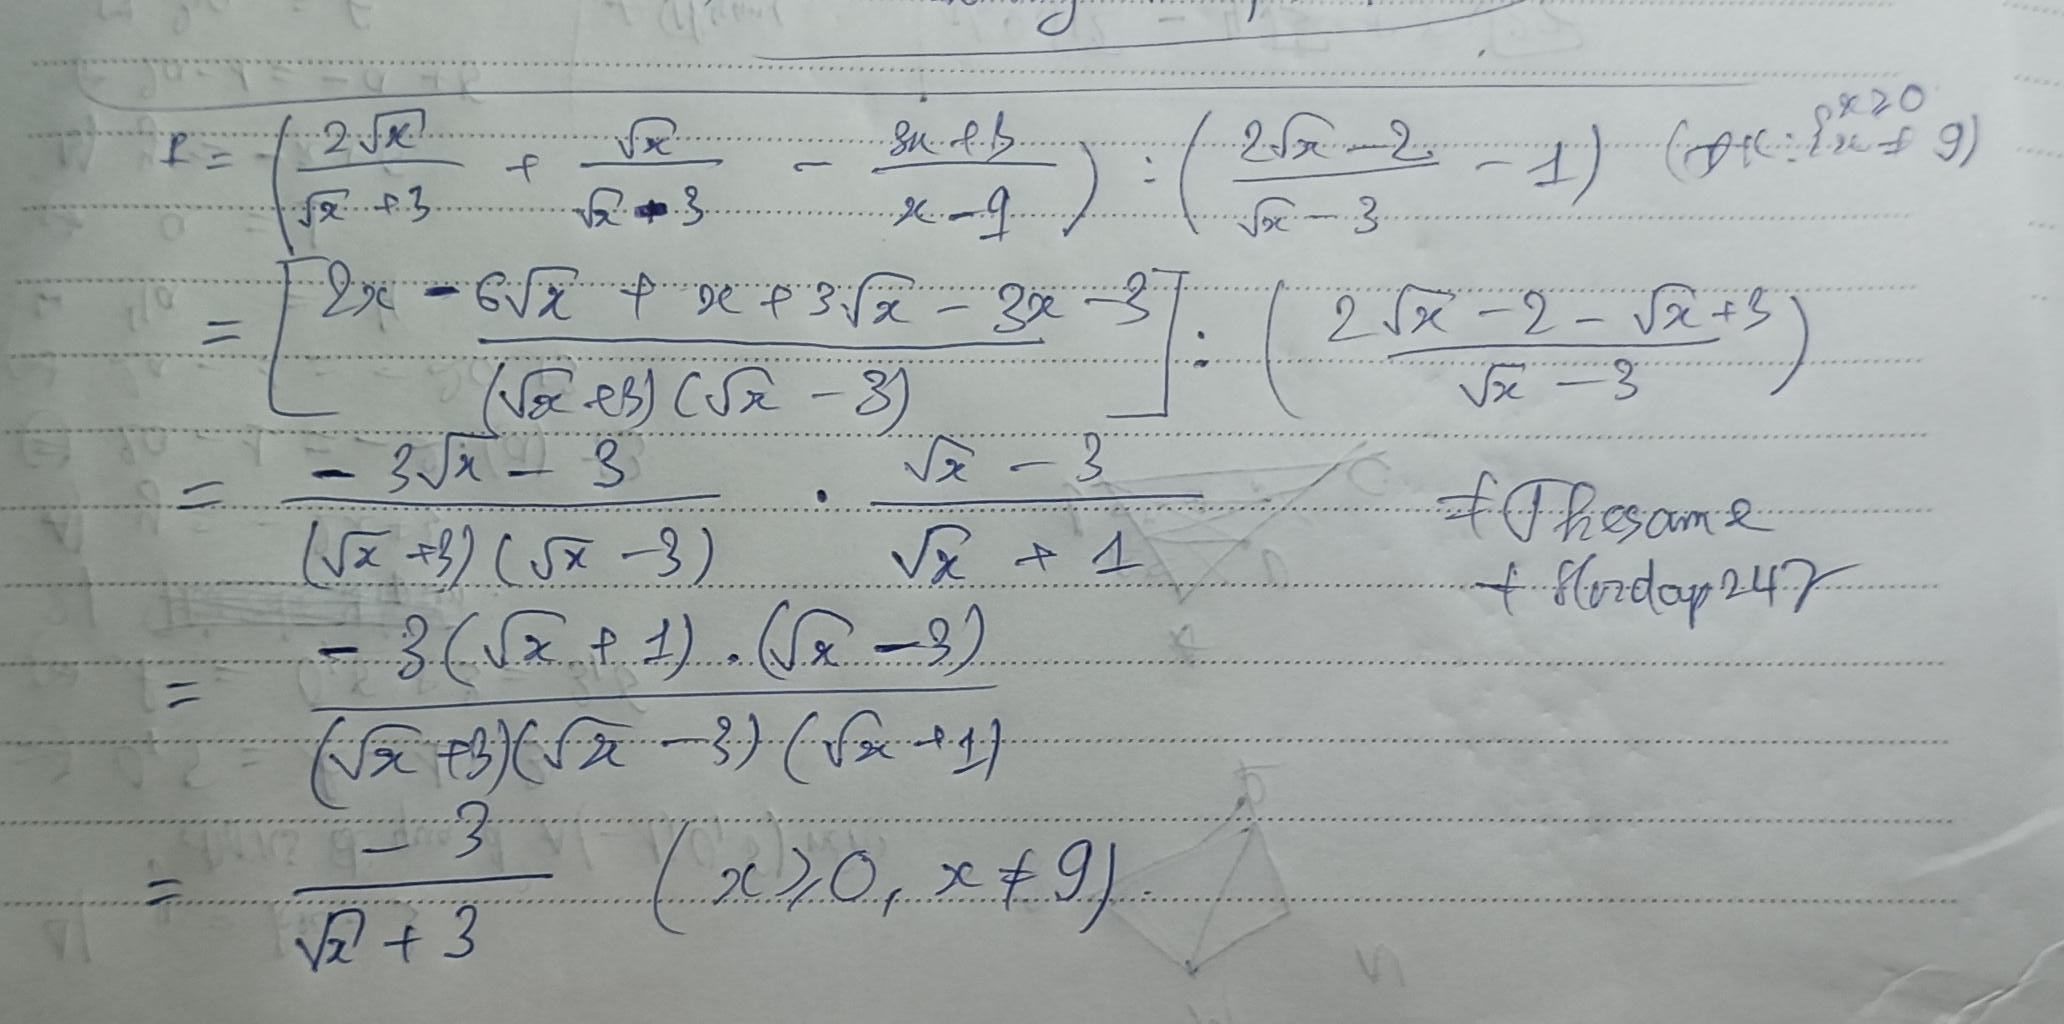 P = ( 2√x / √x + 3 + √x / √x - 3 - 3x + 3 / x - 9 ) : ( 2√x - 2 / √x - 3 - 1 ) (ĐK: { x ≥ 0 x ≠ 9)
= [ 2x - 6√x + x + 3√x - 3x - 3 / (√x + 3) (√x - 3) ] : ( 2√x - 2 - √x + 3 / √x - 3 )
= - 3√x - 3 / (√x + 3) (√x - 3) . √x - 3 / √x + 1
+ Thesame
= - 3(√x + 1) . (√x - 3) / (√x + 3)(√x - 3) (√x + 1)
= - 3 / √x + 3 (x ≥ 0, x ≠ 9).